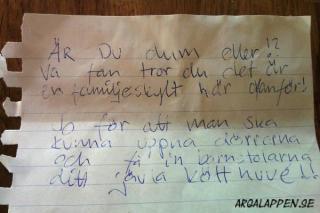 ÄR Du dum eller!?
Va fan tror du det är
en familjeskylt här ovanför!
Jo för att man ska
kunna öppna dörrarna
och få in barnstolarna
ditt jävla kötthuve!!
ARGALAPPEN.SE